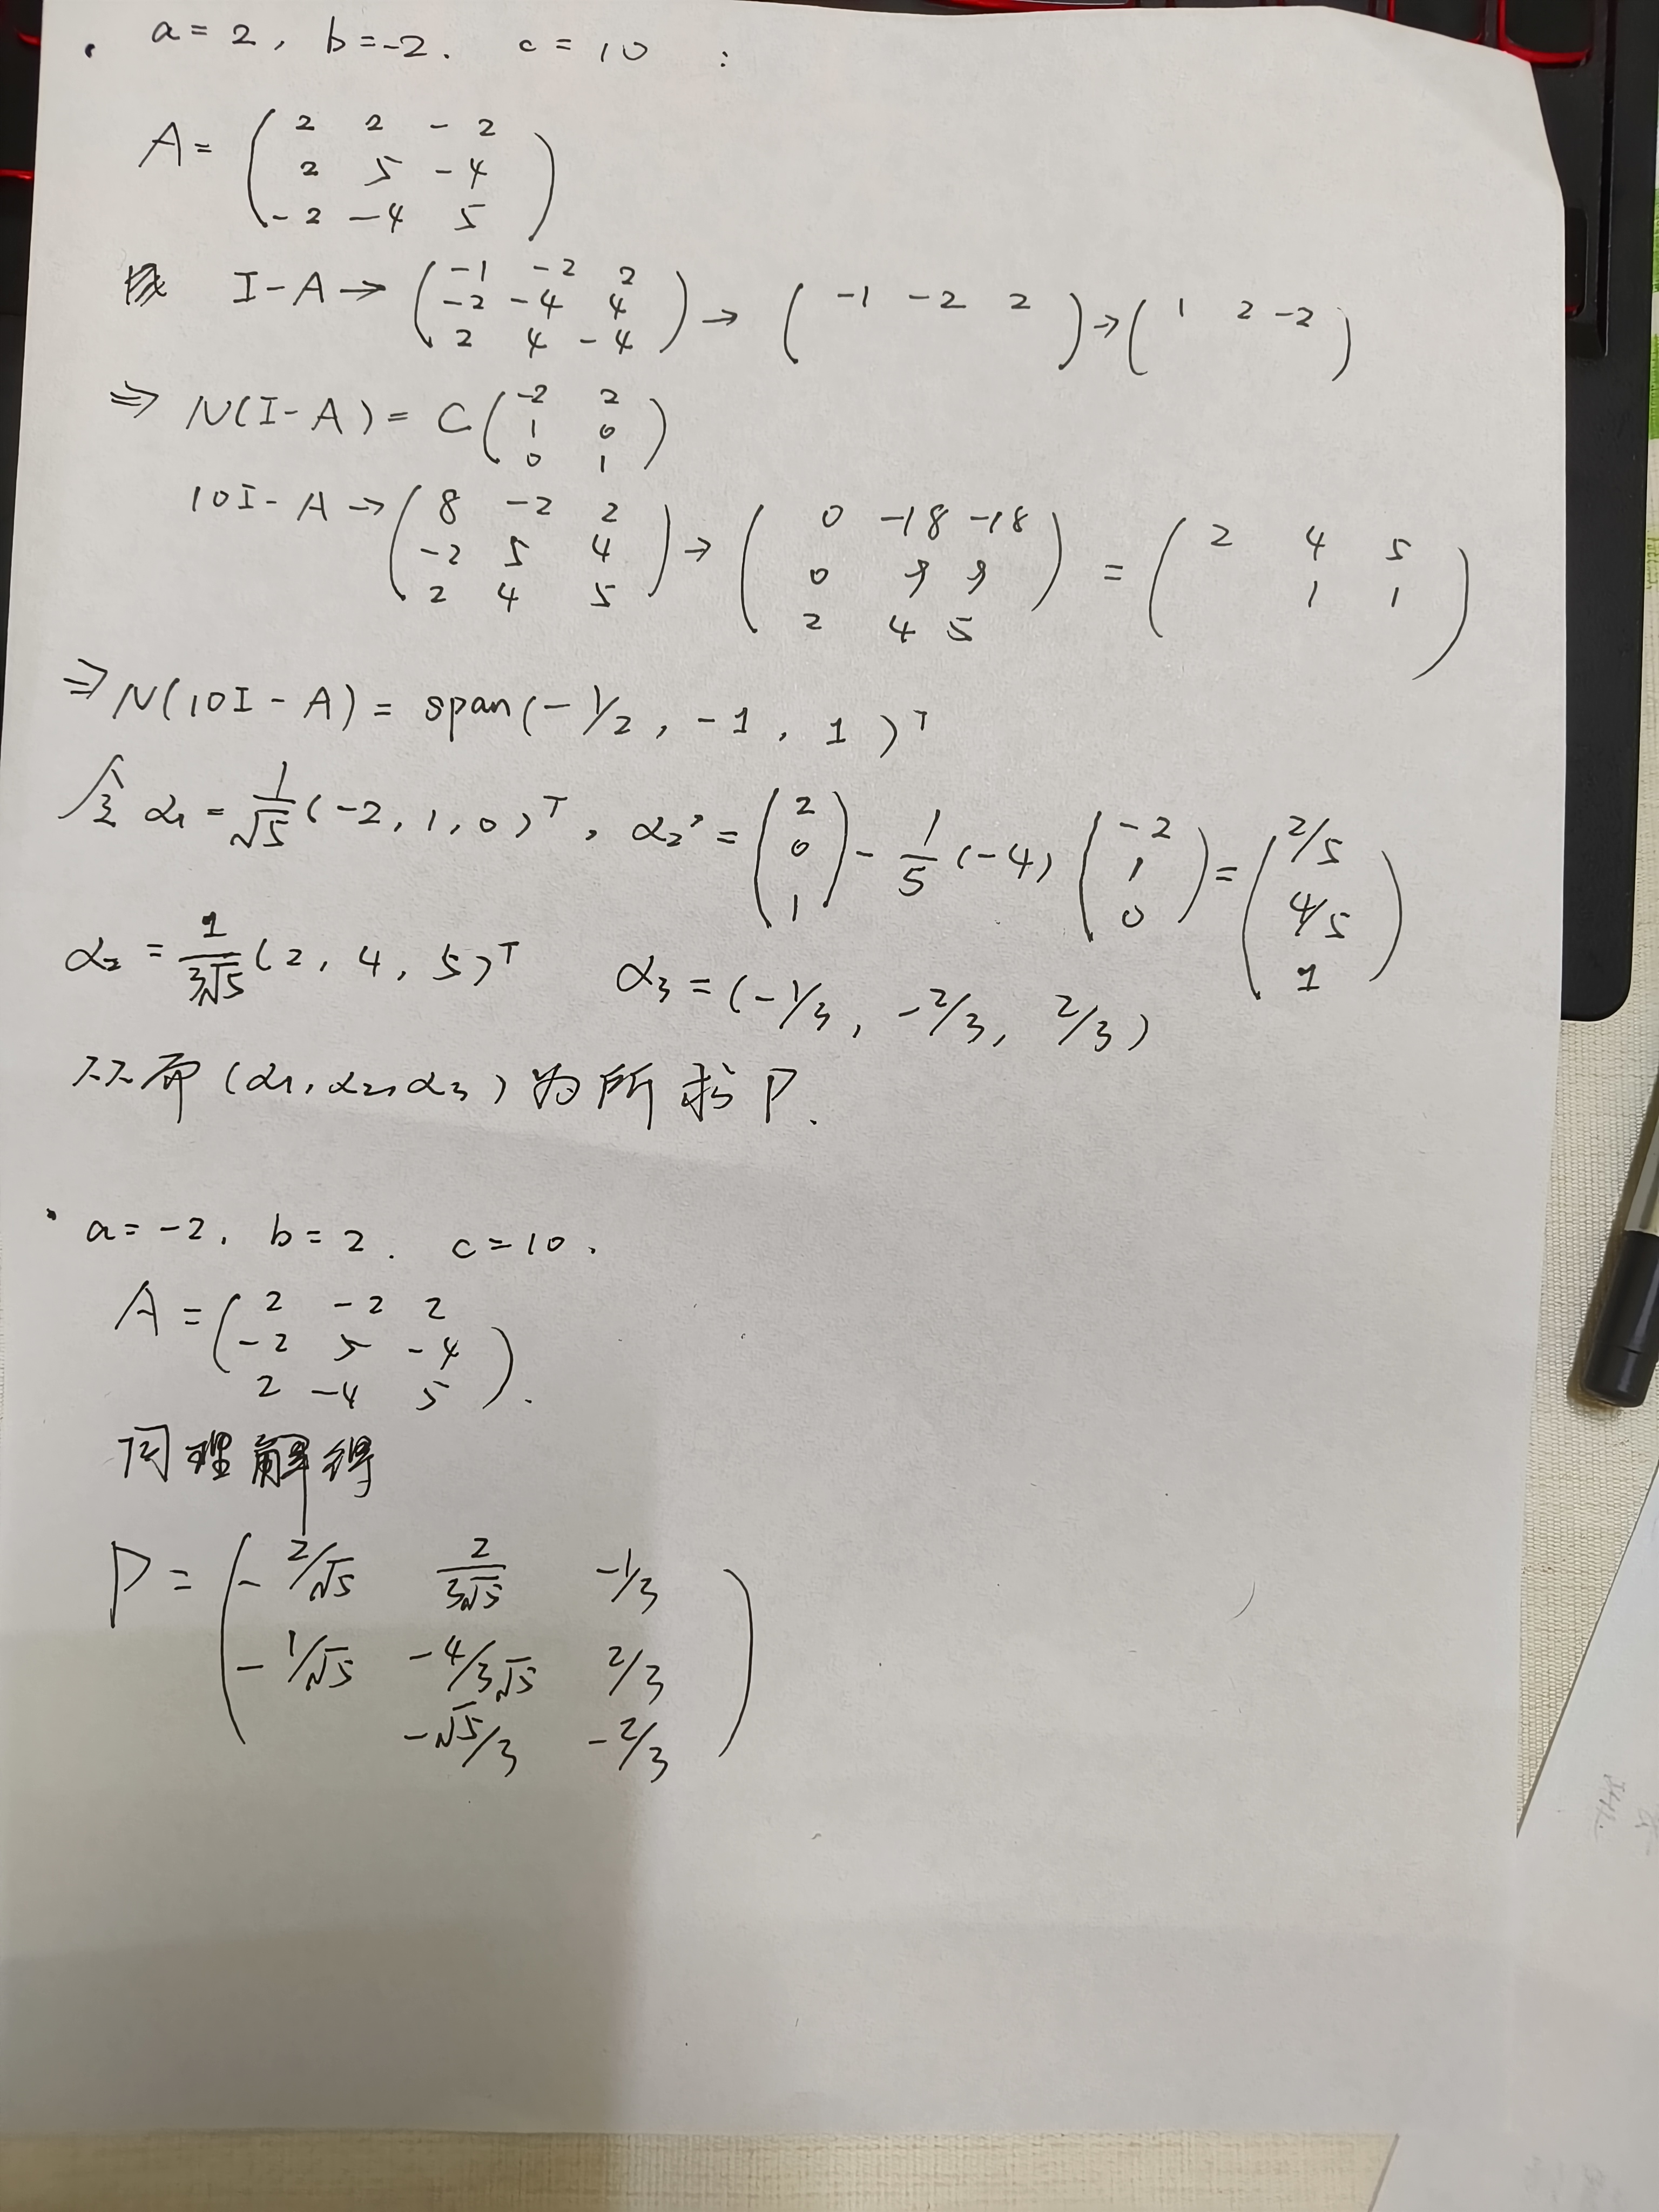 · a=2, b=-2. c=10 :
A= ( 2 2 -2
2 5 -4
-2 -4 5 )
I-A→ ( -1 -2 2
-2 -4 4
2 4 -4 ) → ( -1 -2 2 ) → ( 1 2 -2 )
⇒ N(I-A)= C ( -2 2
1 0
0 1 )
10I-A→ ( 8 -2 2
-2 5 4
2 4 5 ) → ( 0 -18 -18
0 9 9
2 4 5 ) = ( 2 4 5
1 1 )
⇒ N(10I-A)= span(-1/2, -1, 1)ᵀ
令 α₁= 1/√5 (-2, 1, 0)ᵀ, α₂'= ( 2
0
1 ) - 1/5 (-4) ( -2
1
0 ) = ( 2/5
4/5
1 )
α₂ = 1/3√5 (2, 4, 5)ᵀ α₃=(-1/3, -2/3, 2/3)
从而 (α₁,α₂,α₃) 为所求 P.
· a=-2, b=2. c=10.
A= ( 2 -2 2
-2 5 -4
2 -4 5 ).
同理解得
P= ( -2/√5 2/3√5 -1/3
-1/√5 -4/3√5 2/3
-√5/3 -2/3 )